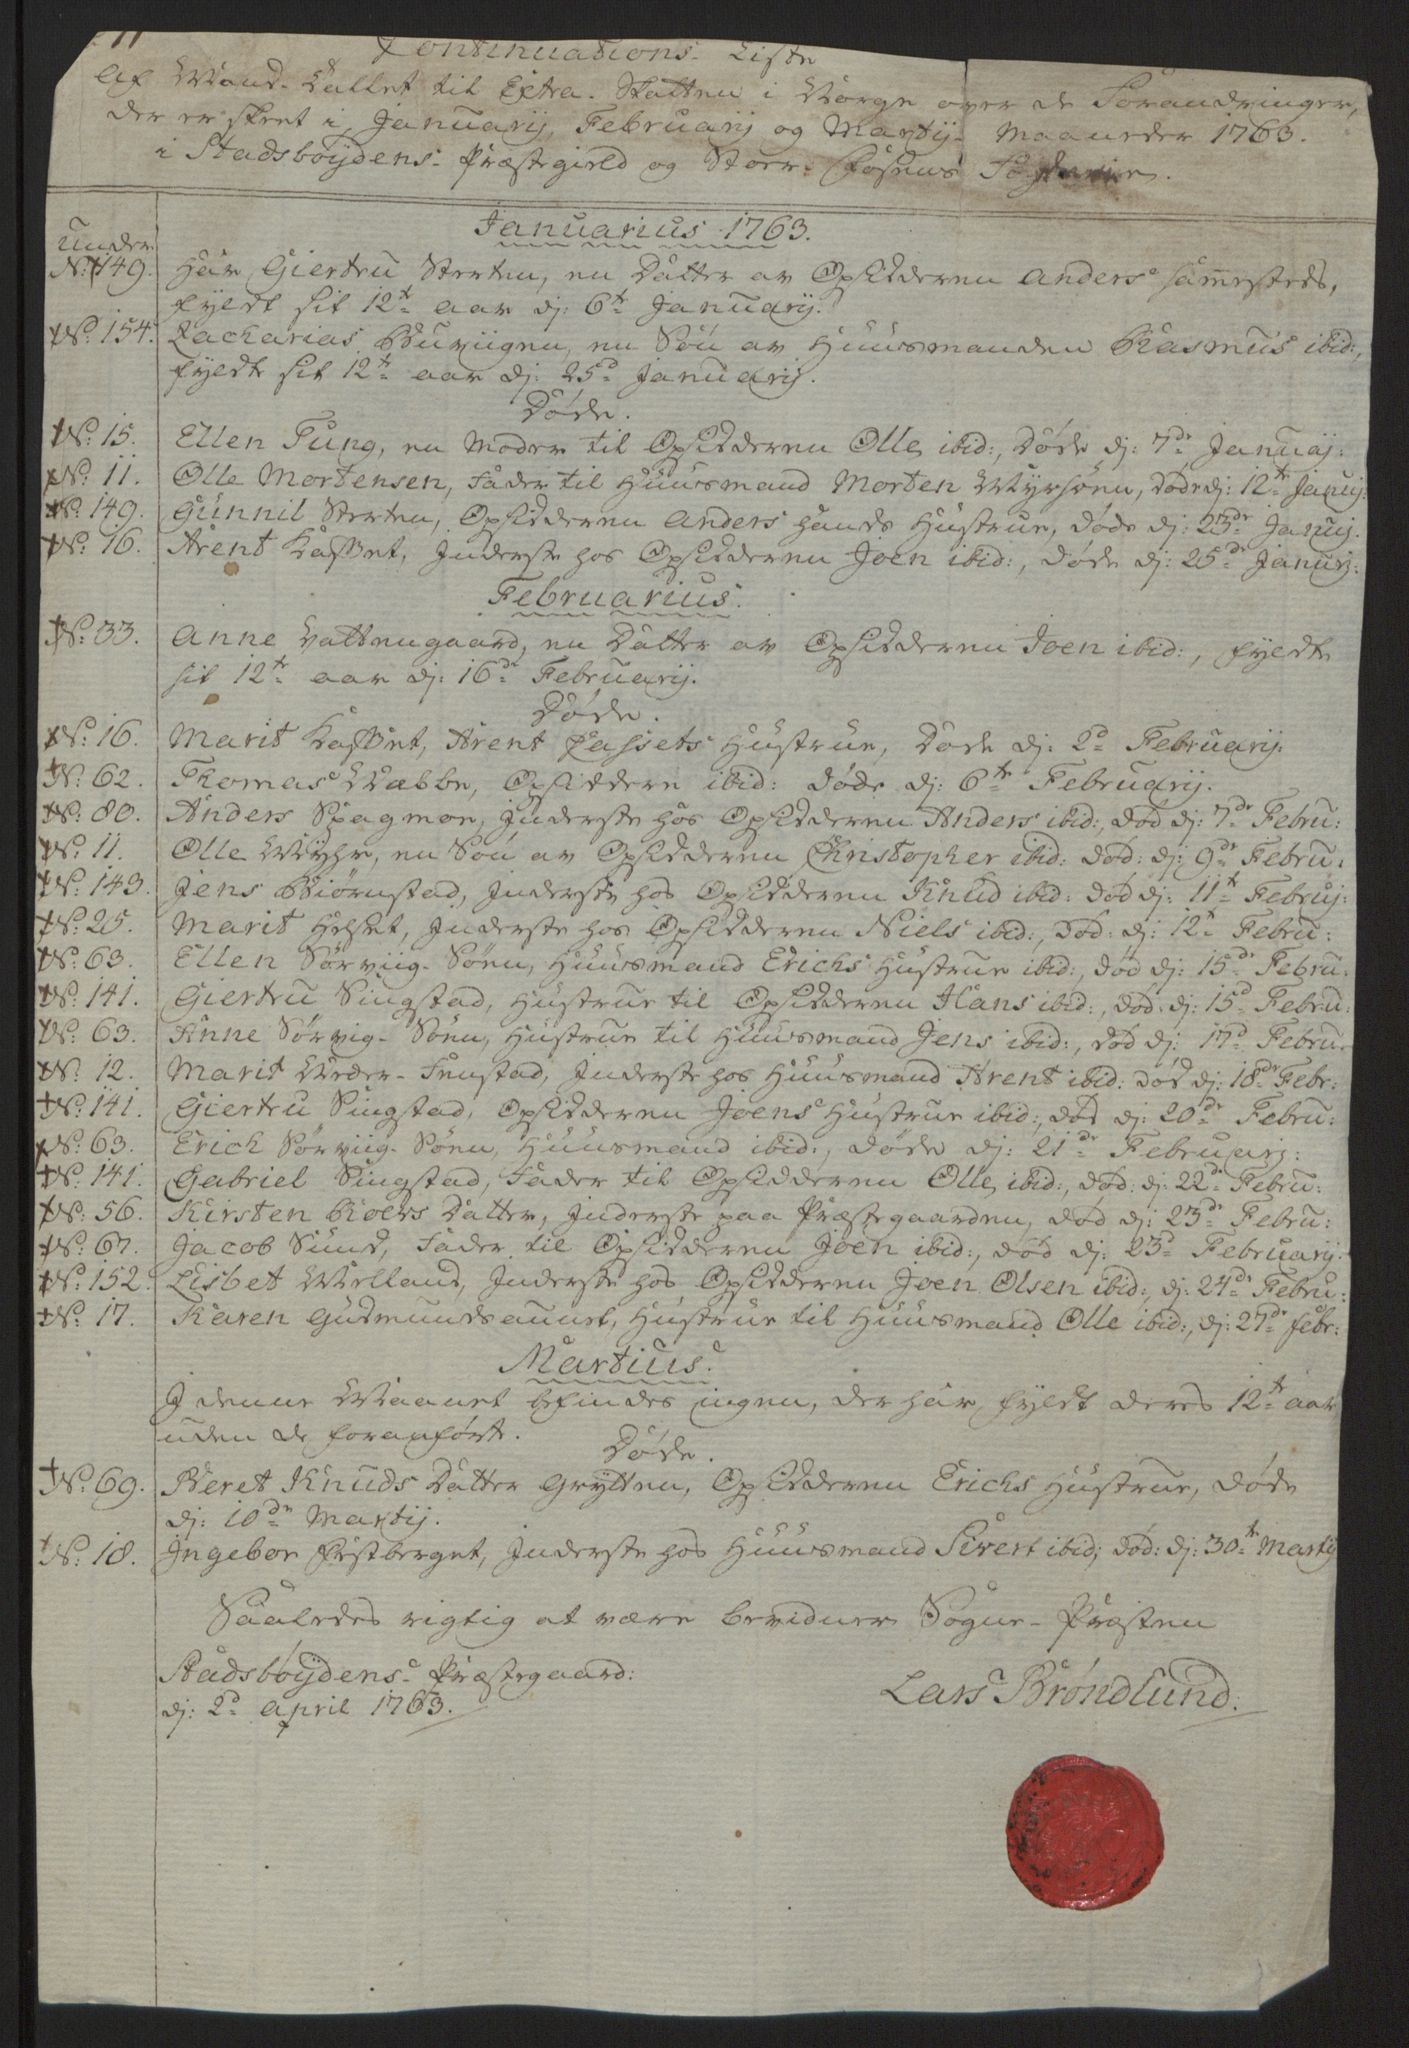 Continuations Liste
Af Mand-Tallet til Extra-Skatten i Norge over de Forandringer,
der er skeet i Januarij, Februarij og Martij Maaneder 1763.
i Stadsbøydens Præstegield og Stoer-Fosens Fogderie.
Januarius 1763.
under
No: 149. Har Giertru Sterten, en Datter av Opsidderen Anders sammesteds,
fyldt sit 12te aar dj: 6te Januarij.
No: 154. Zacharias Buviigen, en Søn av Huusmanden Rasmus ibid:,
fyldt sit 12te aar dj: 25d Januarij.
Døde.
No: 15. Ellen Fung, en Moder til Opsidderen Olle ibid:, Døde dj: 7de Januarj:
No: 11. Olle Mortensen, Fader til Huusmand Morten Myrsøen, døde dj: 12te Januj:
No: 149. Gunnil Sterten, Opsidderen Anders hands Hustrue, døde dj: 23de Januj.
No: 16. Arent Kasset, Inderste hos Opsidderen Joen ibid:, døde dj: 25de Januj:
Februarius.
No: 33. Anne Vattengaard, en Datter av Opsidderen Joen ibid:, fyldt
sit 12te aar dj: 16de Februarij.
Døde.
No: 16. Marit Kasset, Arent Kassets Hustrue, Døde dj: 2d Februarij.
No: 62. ThomasRæbbe, Opsiddere ibid: døde dj: 6te Februarij.
No: 80. Anders Spagmoe, Inderste hos Opsidderen Anders ibid:, død dj: 7de Febru:
No: 11. Olle Myhr, en Søn av Opsidderen Christopher ibid: død: dj: 9de Febru:
No: 143. Jens Biørnstad, Inderste hos Opsidderen Knud ibid: død dj: 11te Februj:
No: 25. Marit Helset, Inderste hos Opsidderen Niels ibid:, død: dj: 12te Febru:
No: 63. Ellen Sørviig-Søen, Huusmand Erichs Hustrue ibid:, død dj: 15de Febru:
No: 141. Giertru Singstad, Hustrue til Opsidderen Hans ibid:, død: dj: 15d Febru:
No: 63. Anne Sørvig-Søen, Hustrue til Huusmand Jens ibid:, død dj: 17d Febru:
No: 12. Marit Neder-Fenstad, Inderste hos Huusmand Arent ibid: død dj: 18de Febr:
No: 141. Giertru Singstad, Opsidderen Joens Hustrue ibid:, død dj: 20de Febru:
No: 63. Erich Sørviig-Søen, Huusmand ibid:, døde dj: 21de Februarj:
No: 141. Gabriel Singstad, Fader til Opsidderen Olle ibid:, død: dj: 22de Febru:
No: 56. Kirsten Roers Datter, Inderste paa Præstegaarden, død dj: 23de Febru:
No: 67. Jacob Sund, Fader til Opsidderen Joen ibid:, død dj: 23d Februarij.
No: 152. Lisbet Melland, Inderste hos Opsidderen Joen Olsen ibid:, dj: 24de Febru:
No: 17. Karen Gudmundsaunet, Hustrue til Huusmand Olle ibid:, dj: 27de febr:
Martius.
I denne Maanet befindes ingen, der har fyldt deres 12te aar
uden de foranførte.
Døde.
No: 69. Beret Knuds Datter Grytten, Opsidderen Erichs Hustrue, døde
dj: 10de Martij.
No: 18. Ingebor Festberget, Inderste hos Huusmand Sivert ibid; død: dj: 30te Martij
Saaledes rigtig at være bevidner Sogne-Præsten
Stadsbøydens Præstegaard:
dj: 2d april 1763.
Lars Brøndlund.